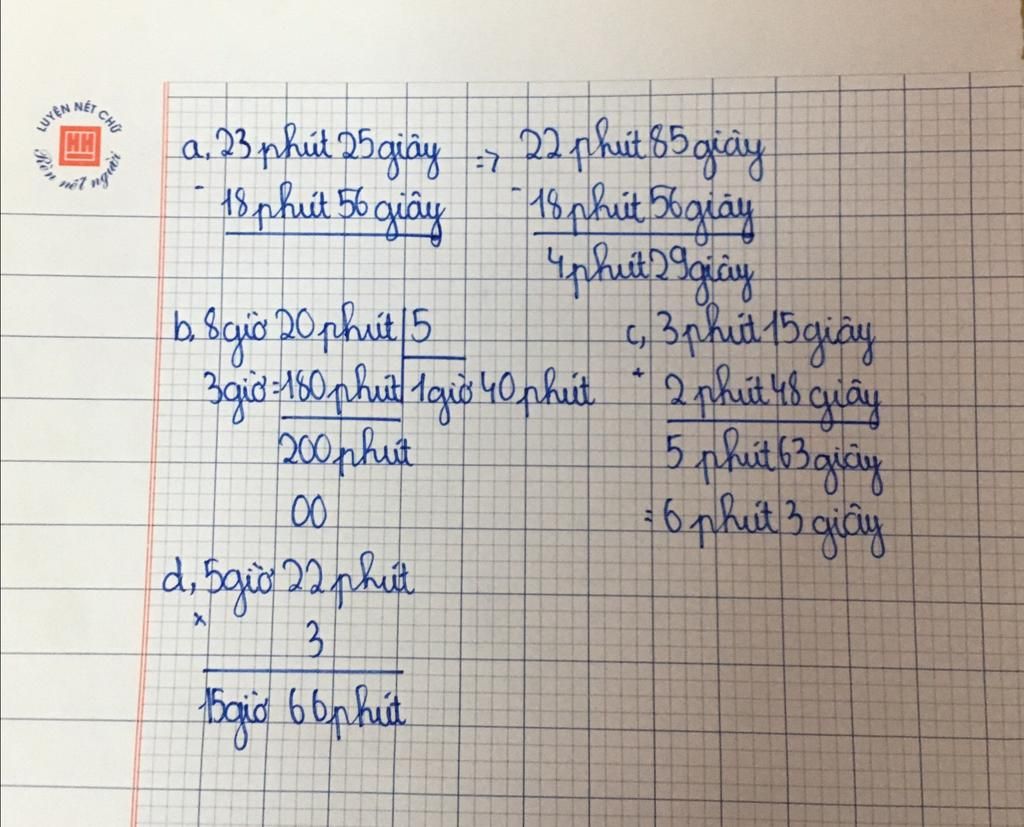 LUYỆN NÉT CHỮ
HH
Rèn nét người
a, 23 phút 25 giây => 22 phút 85 giây
- 18 phút 56 giây - 18 phút 56 giây
4 phút 29 giây
b, 8 giờ 20 phút 5
3 giờ = 180 phút 1 giờ 40 phút
200 phút
00
c, 3 phút 15 giây
+ 2 phút 48 giây
5 phút 63 giây
= 6 phút 3 giây
d, 5 giờ 22 phút
x 3
15 giờ 66 phút